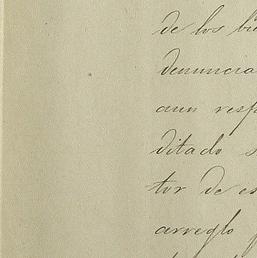 de los bi
denuncia
aun resp
ditado s
tor de es
arreglo